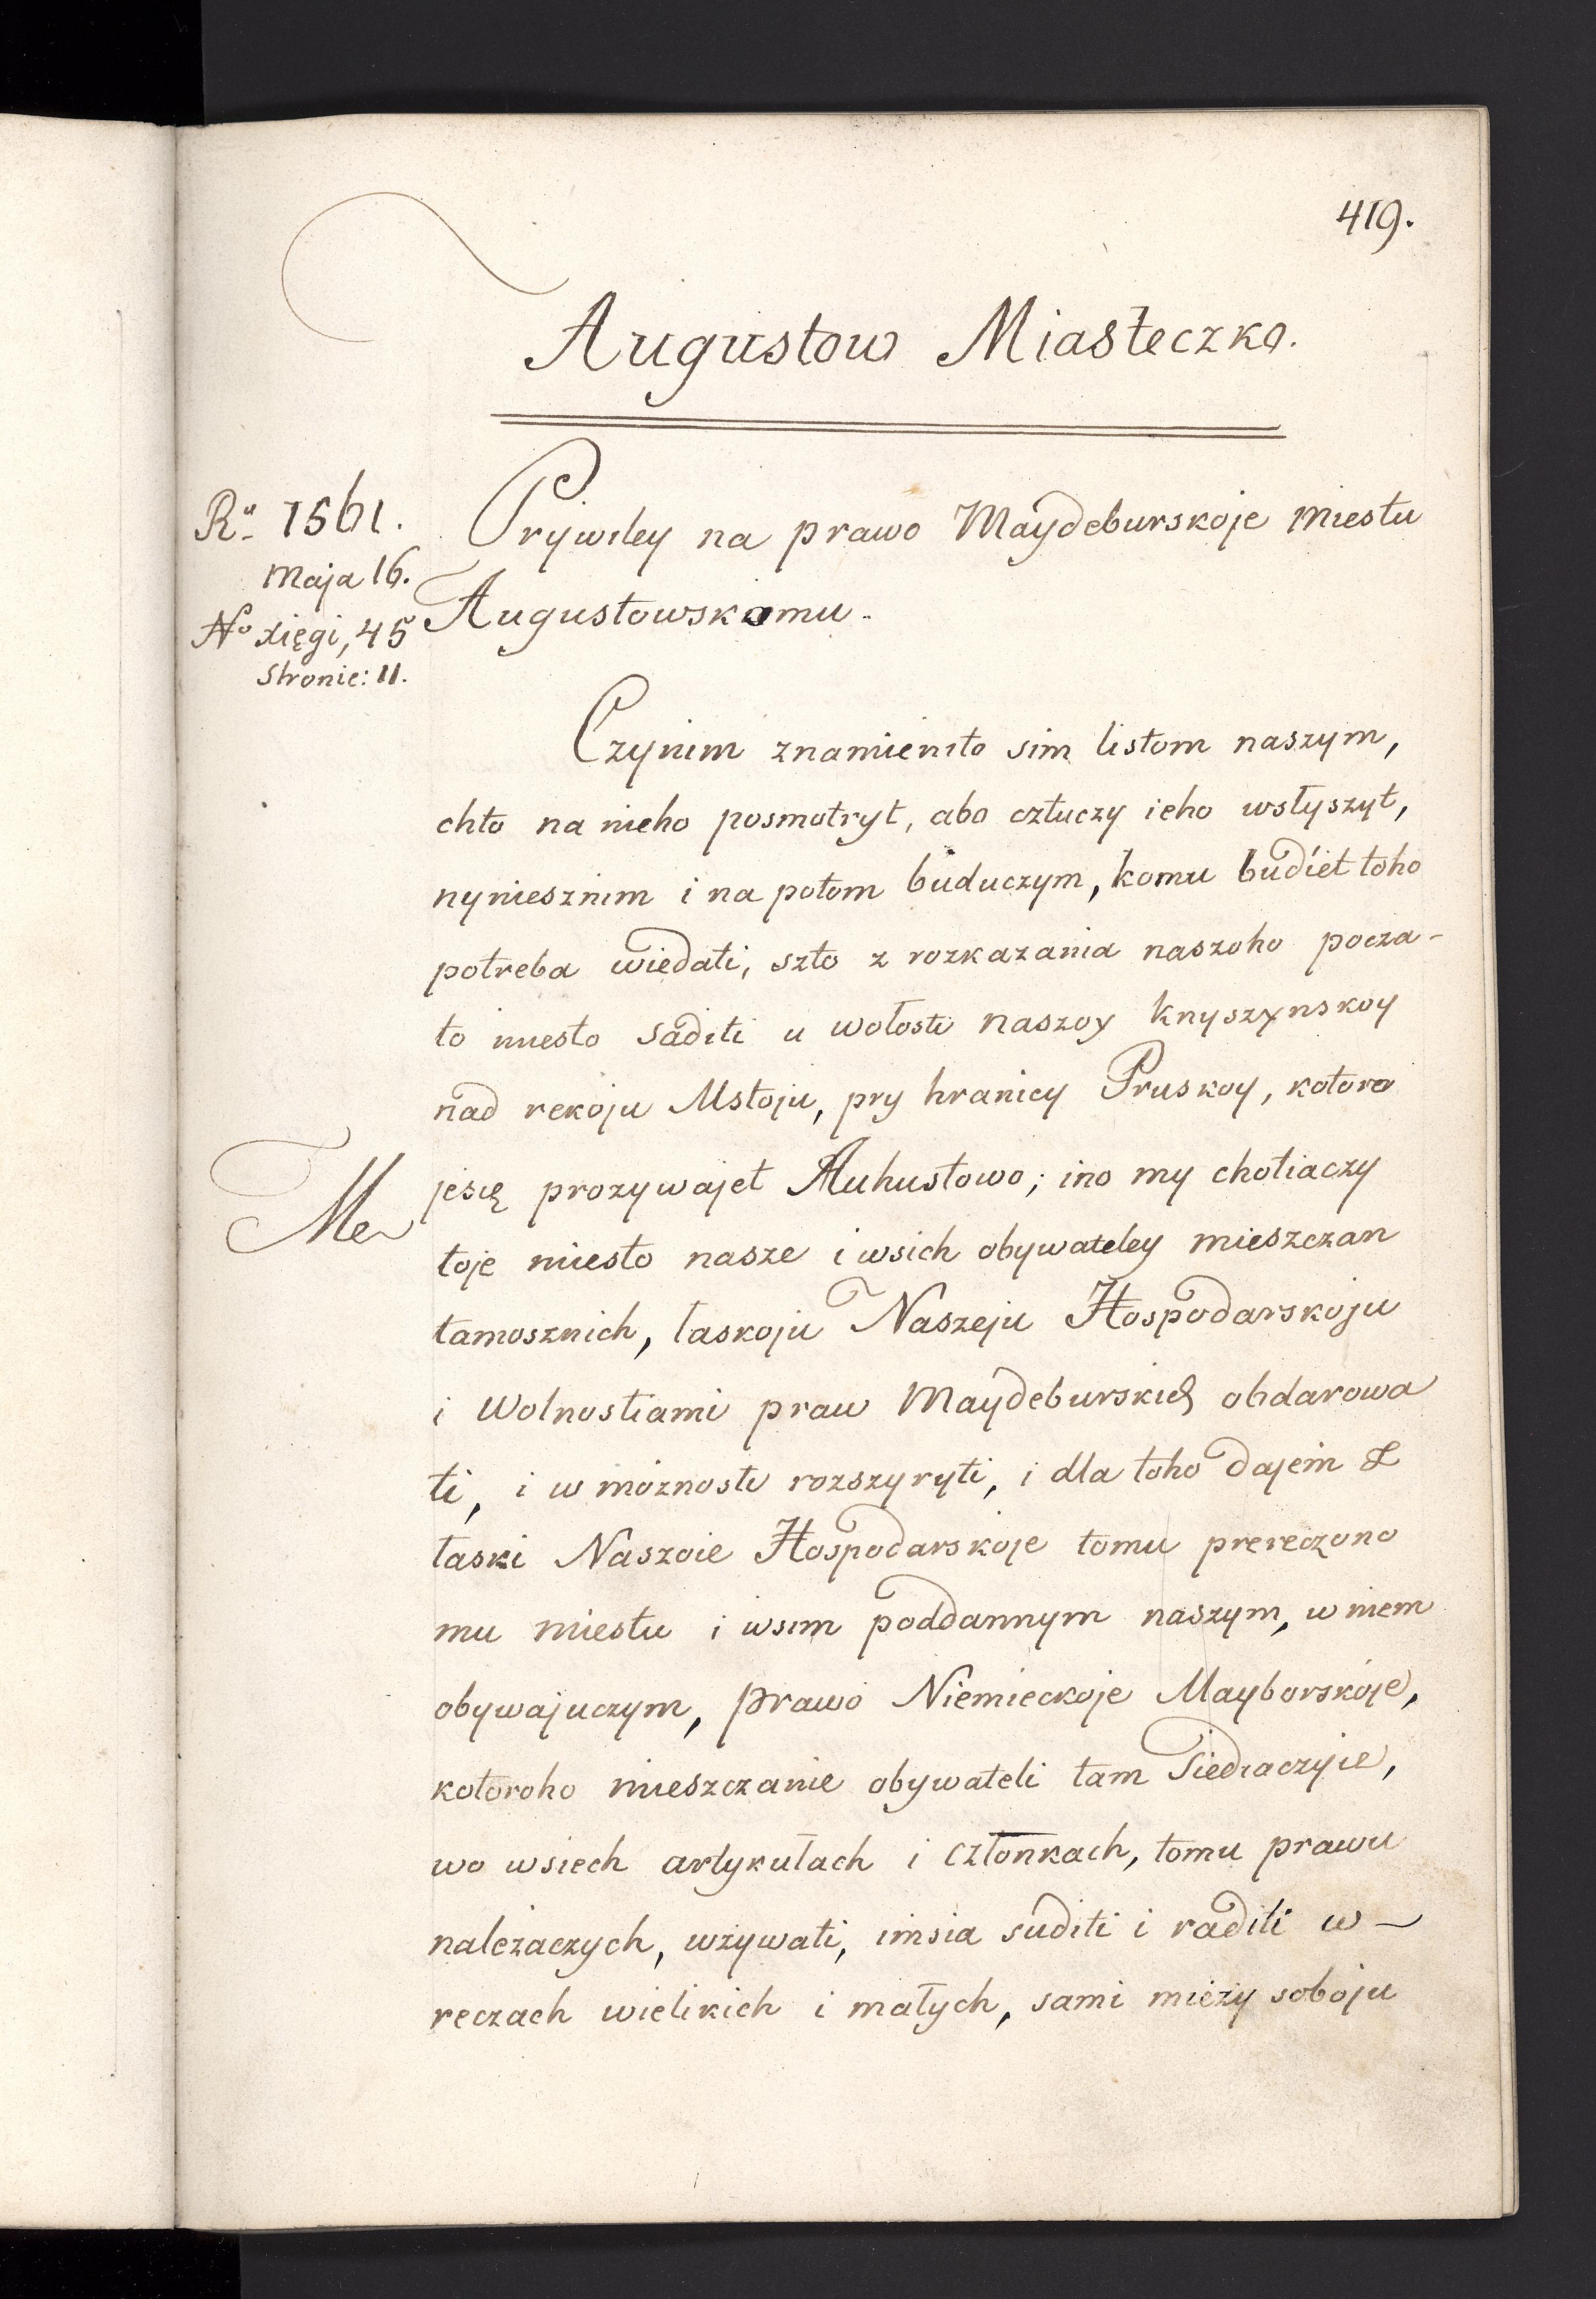 419.
Augustow Miasteczko.
Ru 1561.
Maja 16.
No xięgi, 45
Stronic: 11.
Prywiley na prawo Maydeburskoje miestu
Augustowskomu.
Czynim znamienito sim listom naszym,
chto na nieho posmotryt, abo cztuczy ieho wsłyszyt,
nyniesznim i na potom buduczym, komu budiet toho
potreba wiedati, szto z rozkazania naszoho pocza-
to miesto saditi u wołosti naszoy Knyszynskoy
nad rekoju Mstoju, pry hranicy Pruskoy, kotoro
je się prozywajet Auhustowo; ino my chotiaczy
Me
toje miesto nasze i wsich obywateley mieszczan
tamosznich, łaskoju Naszeju Hospodarskoju
i Wolnostiami praw Maydeburskich obdarowa
ti, i w możnosti rozszyryti, i dla toho dajem Z
łaski Naszoie Hospodarskoje tomu prereczono
mu miestu i wsim poddannym naszym, w niem
obywajuczym, prawo Niemieckoje Mayborskoje,
kotoroho mieszczanie obywateli tam Siediaczyie,
wo wsiech artykułach i członkach, tomu prawu
należaczych, wżywati, imsia suditi i raditi w
reczach wielikich i małych, sami mieży soboju